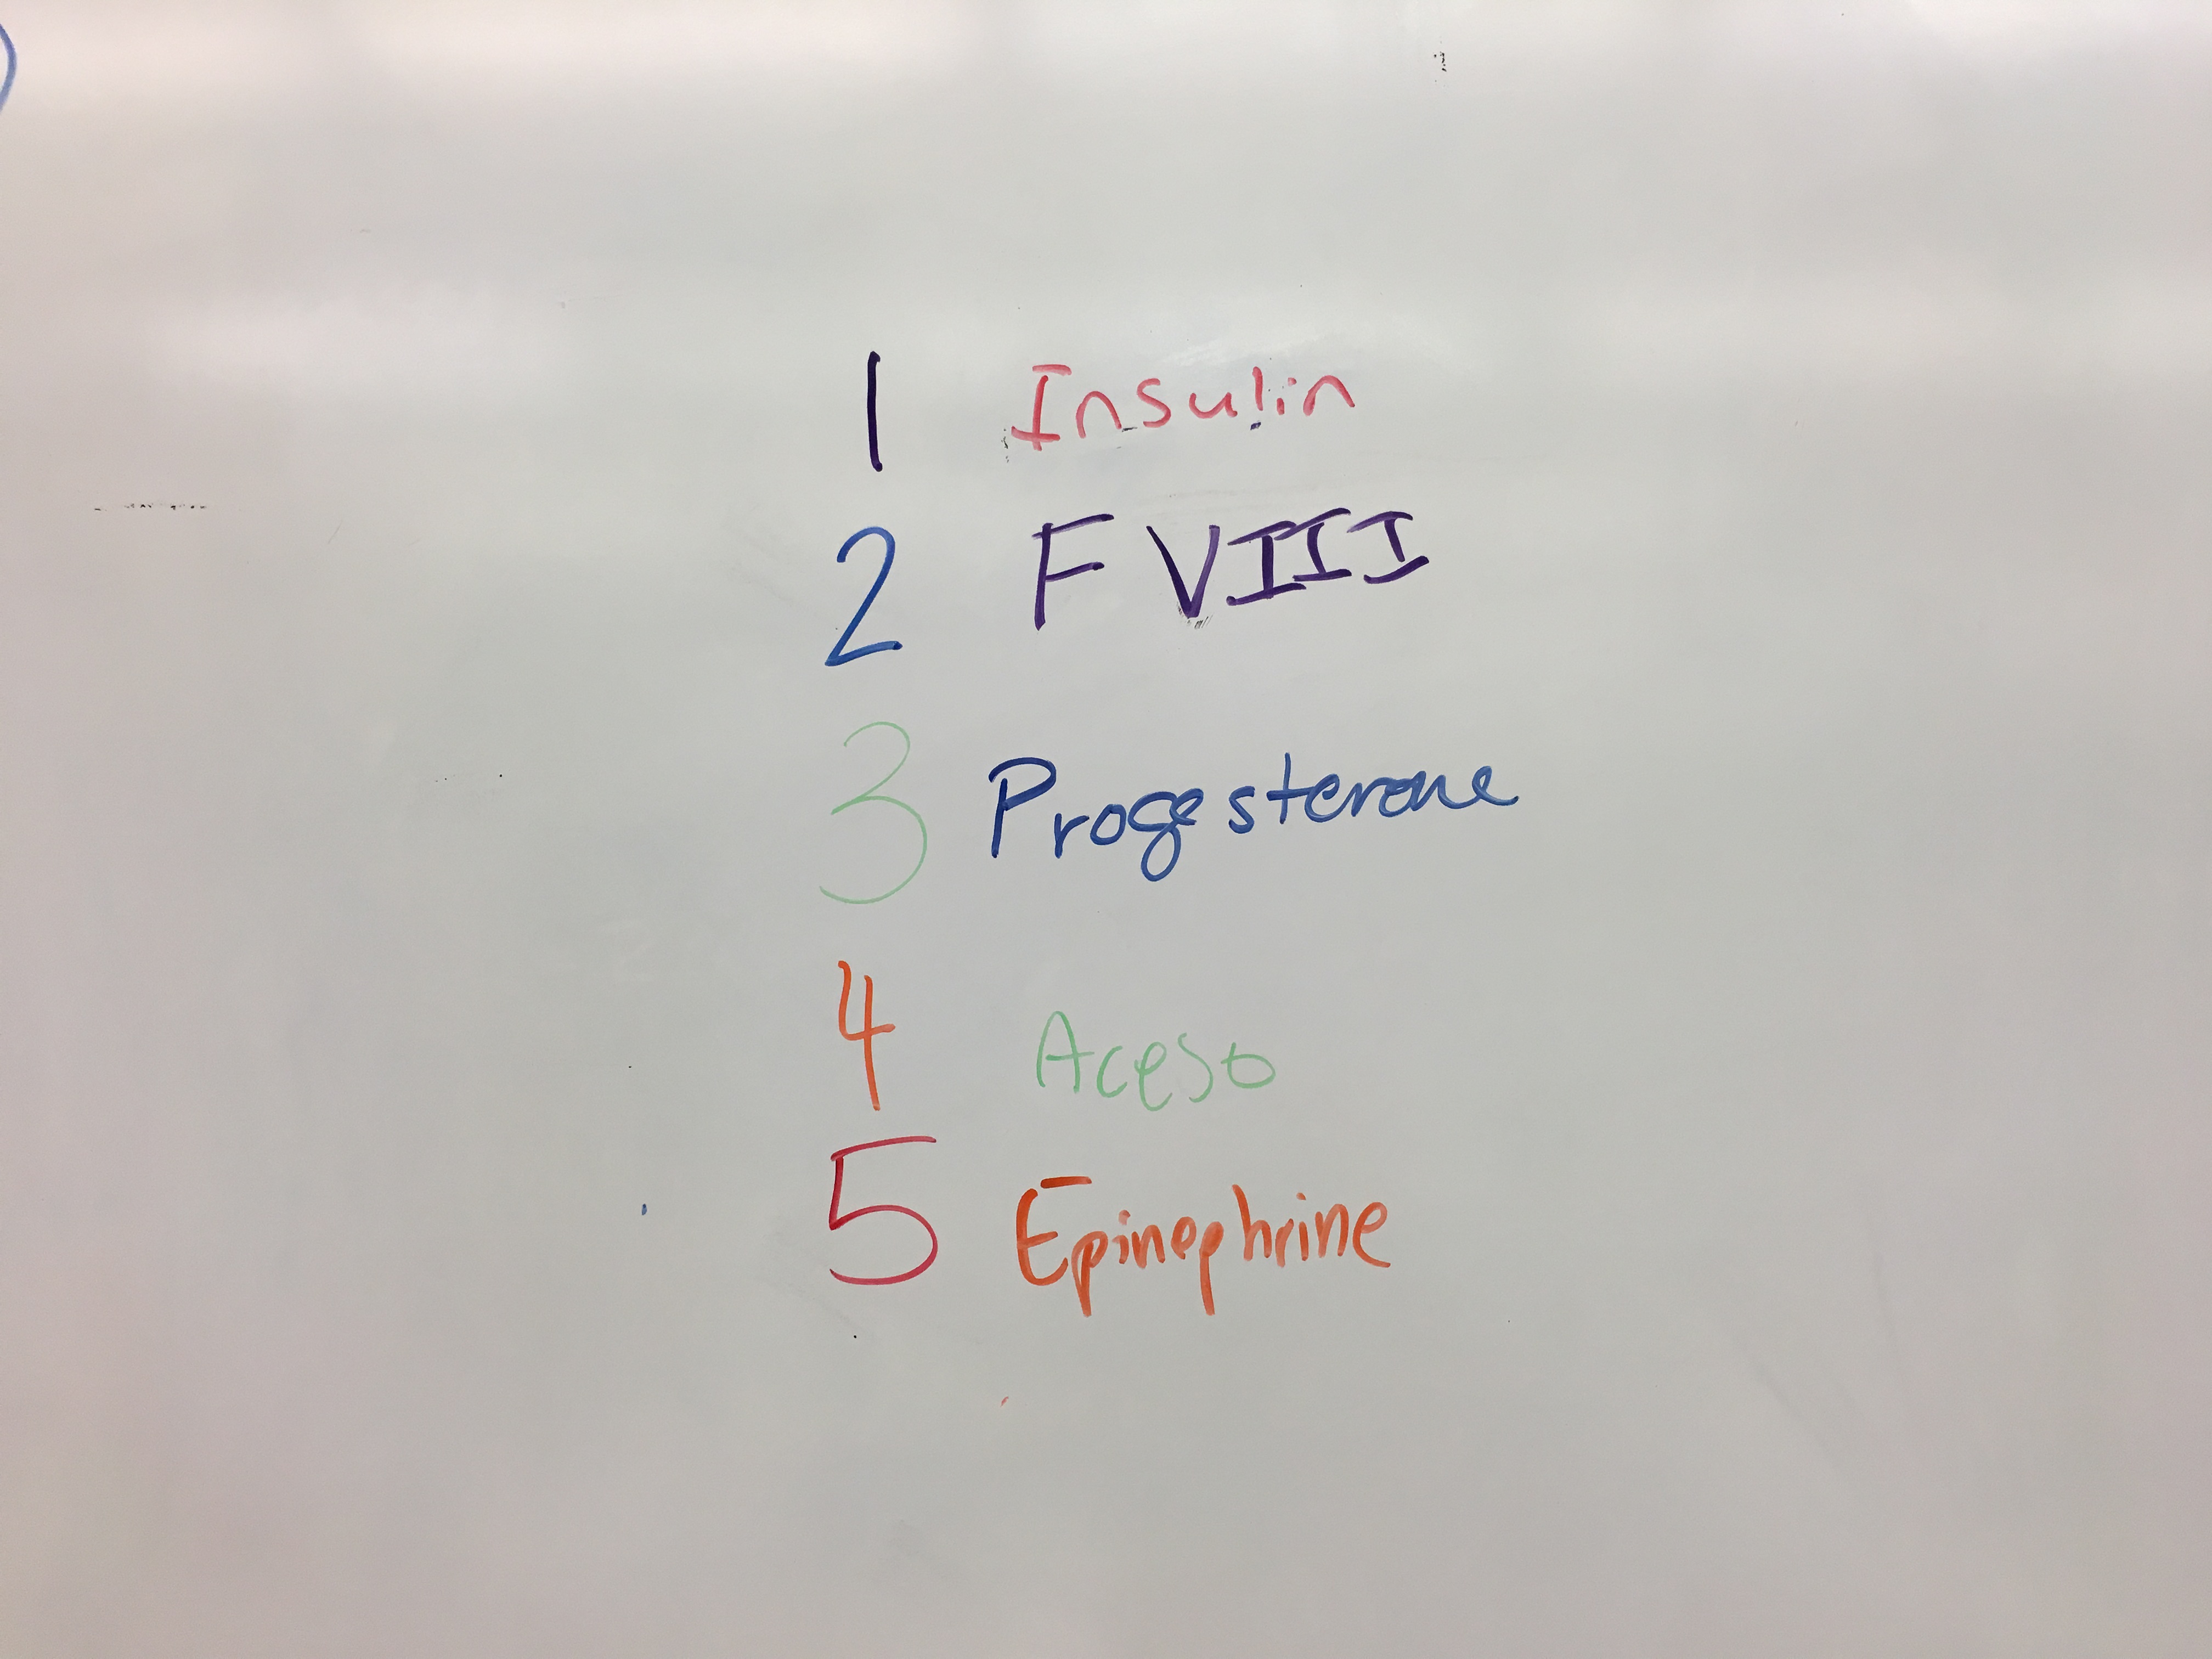 1 Insulin
2 F VIII
3 Progesterone
4 Aceso
5 Epinephrine